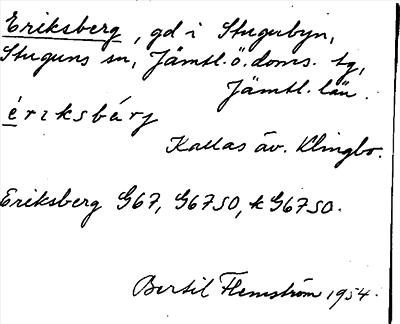 Eriksberg, gd i Stugubyn,
Stuguns sn, Jämtl. ö. doms. tg,
Jämtl. län.
ériksbárj
Kallas äv. Klingbo.
Eriksberg G67, G67SO, k G67SO.
Bertil Flemström 1954.